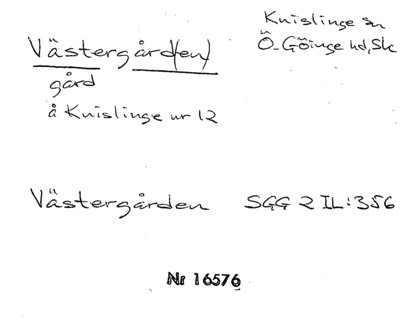 Västergård(en)
Knislinge sn
Ö. Göinge hd, Sk
gård
å Knislinge nr 12
Västergården SGG 2 IL:356
Nr 16576